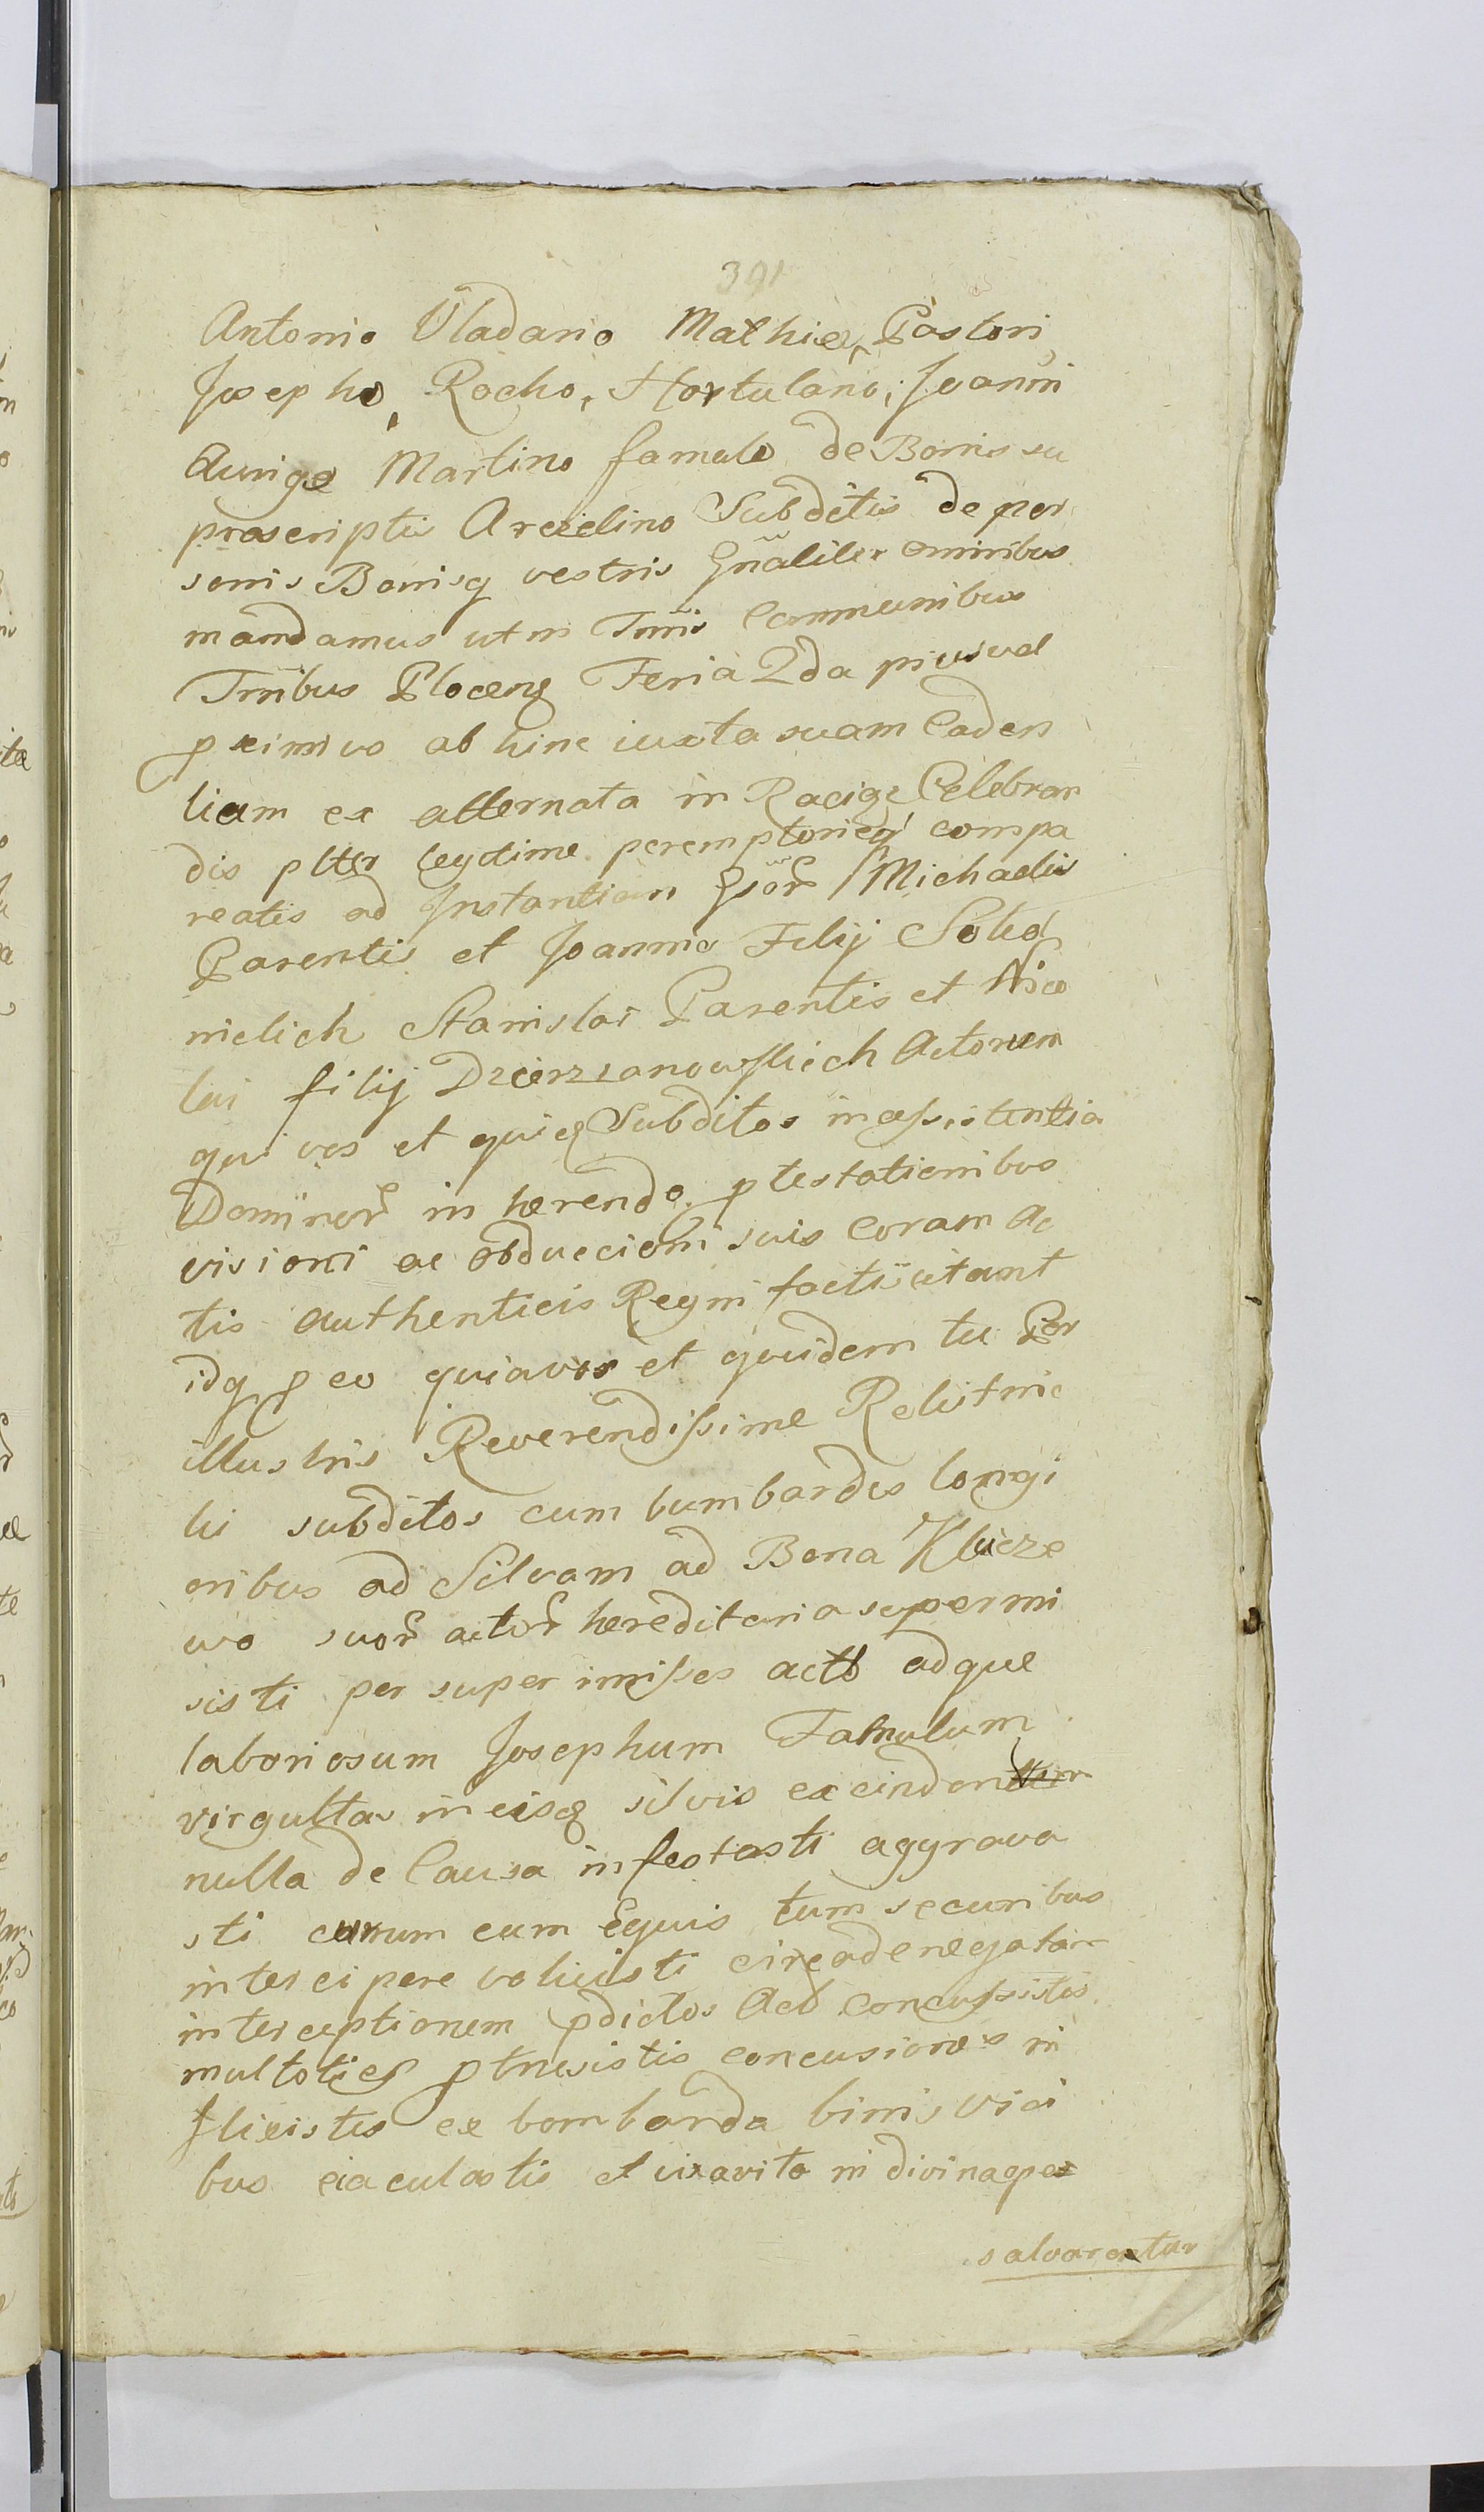 391
Antonio Vladario Mathiæ, Pastori
Josepho, Rocho, Hortulano, Joanni
Aurigæ Martino famulo de Bonis su
prascriptis Arcielino Subditis de per
sonis Bonisq vestris Gñaliter omnibus
mandamus ut in Tmis Communibus
Tmibus Plocens Feria 2da pius vel
pximius ab hinc iuxta suam Caden
tiam ex alternata in Raciąż Celebran
dis plter legitime peremptorieq compa
reatis ad Jnstantiam Gsor Michaelis
Parentis et Joannis Filij Sokol
nickich Stanislai Parentis et Nico
lai filij Dzierzanowskich Actorum
qui vos et quiq Subditos in assistentia
Dominor in hærendo ptestationibus
visioni ac obduccioni suis coram Ac
tis authenticis Regni factis citant
idq p eo quia vos et quidem tu Per
illustris Reverendissime
subditos cum bumbardis longi
oribus ad Silvam ad Bona Klicze
wo suor actor hereditaria supermi
sisti per super imisses acto adque
laboriosum Josephum Famulum
virgultas in eisq silvis excinden
nulla de Causa infestasti aggrava
sti currum cum Equis tum securibus
intercipere voluisti circa denegatam
interceptionem pdictos Act concussistis
multoties concusiones in
flixistis ex bombarda binis vici
bus eiaculastis et in divina ope
salvarentur